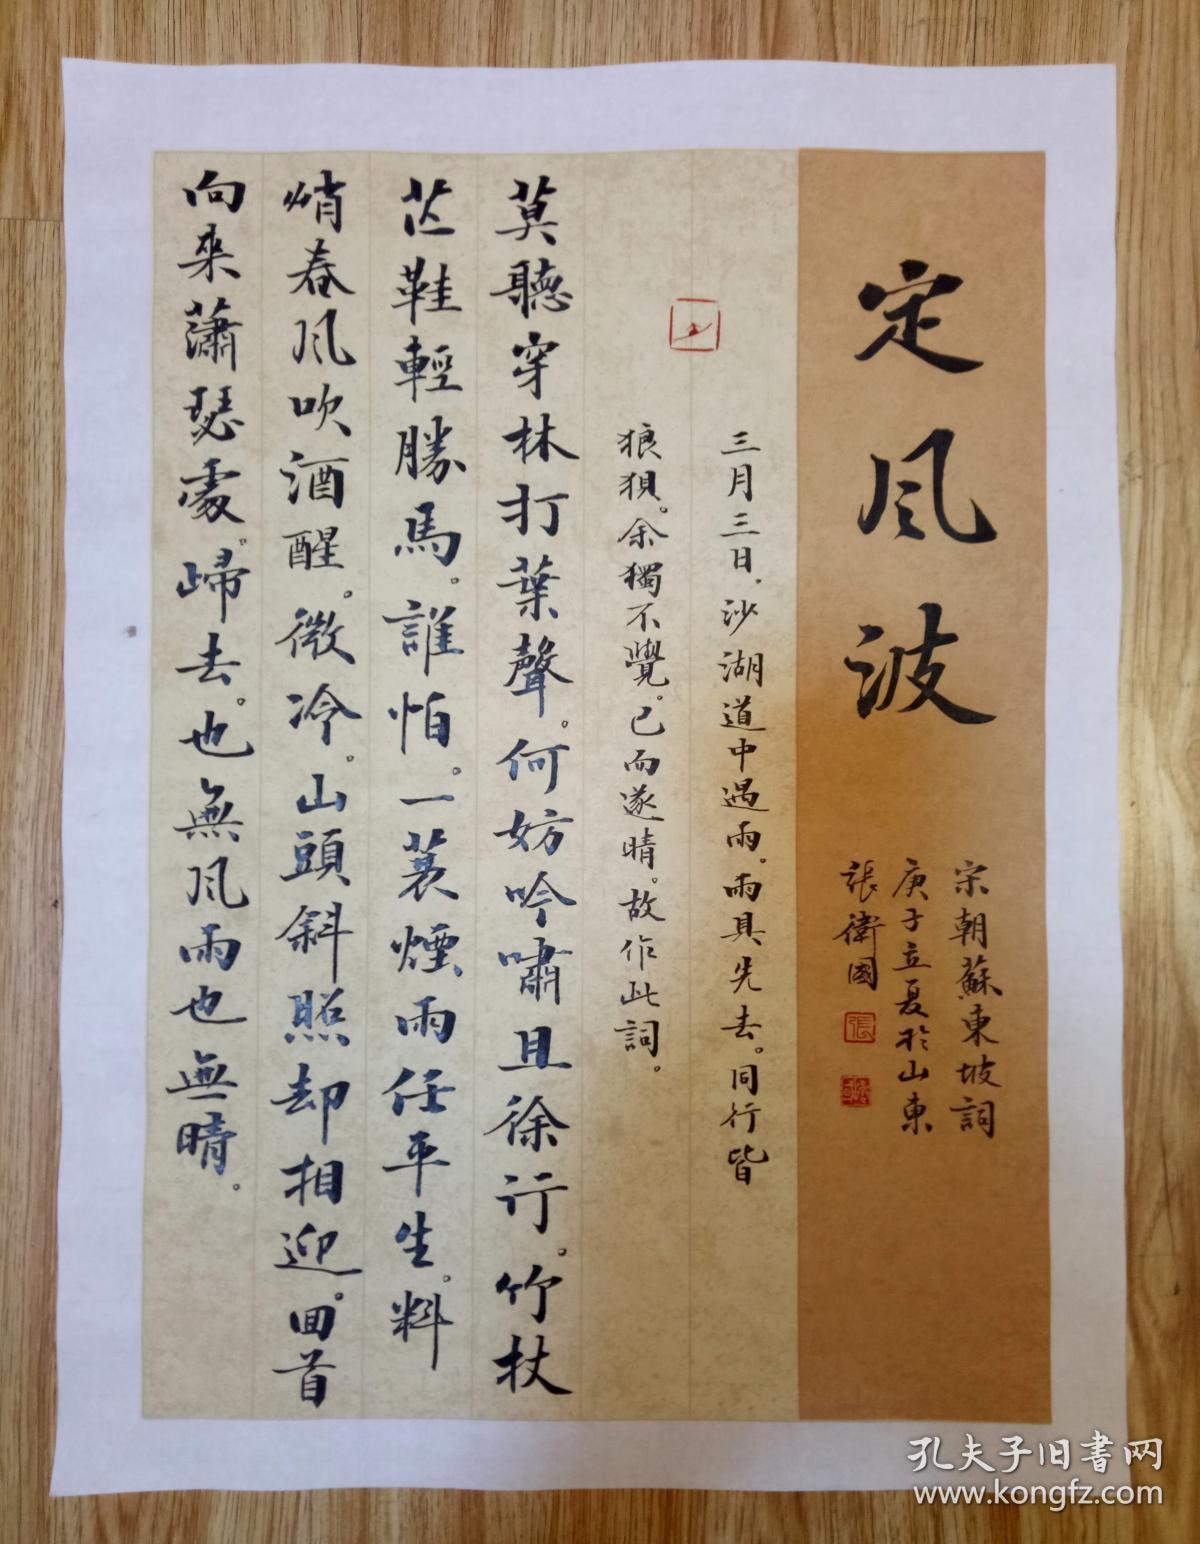 定風波
宋朝蘇東坡詞
庚子立夏於山東
張衛國
三月三日，沙湖道中遇雨。雨具先去。同行皆
狼狽。余獨不覺。已而遂晴。故作此詞。
莫聽穿林打葉聲。何妨吟嘯且徐行。竹杖
芒鞋輕勝馬。誰怕。一蓑煙雨任平生。料
峭春風吹酒醒。微冷。山頭斜照却相迎。回首
向來蕭瑟處。歸去。也無風雨也無晴。
孔夫子旧書网
www.kongfz.com